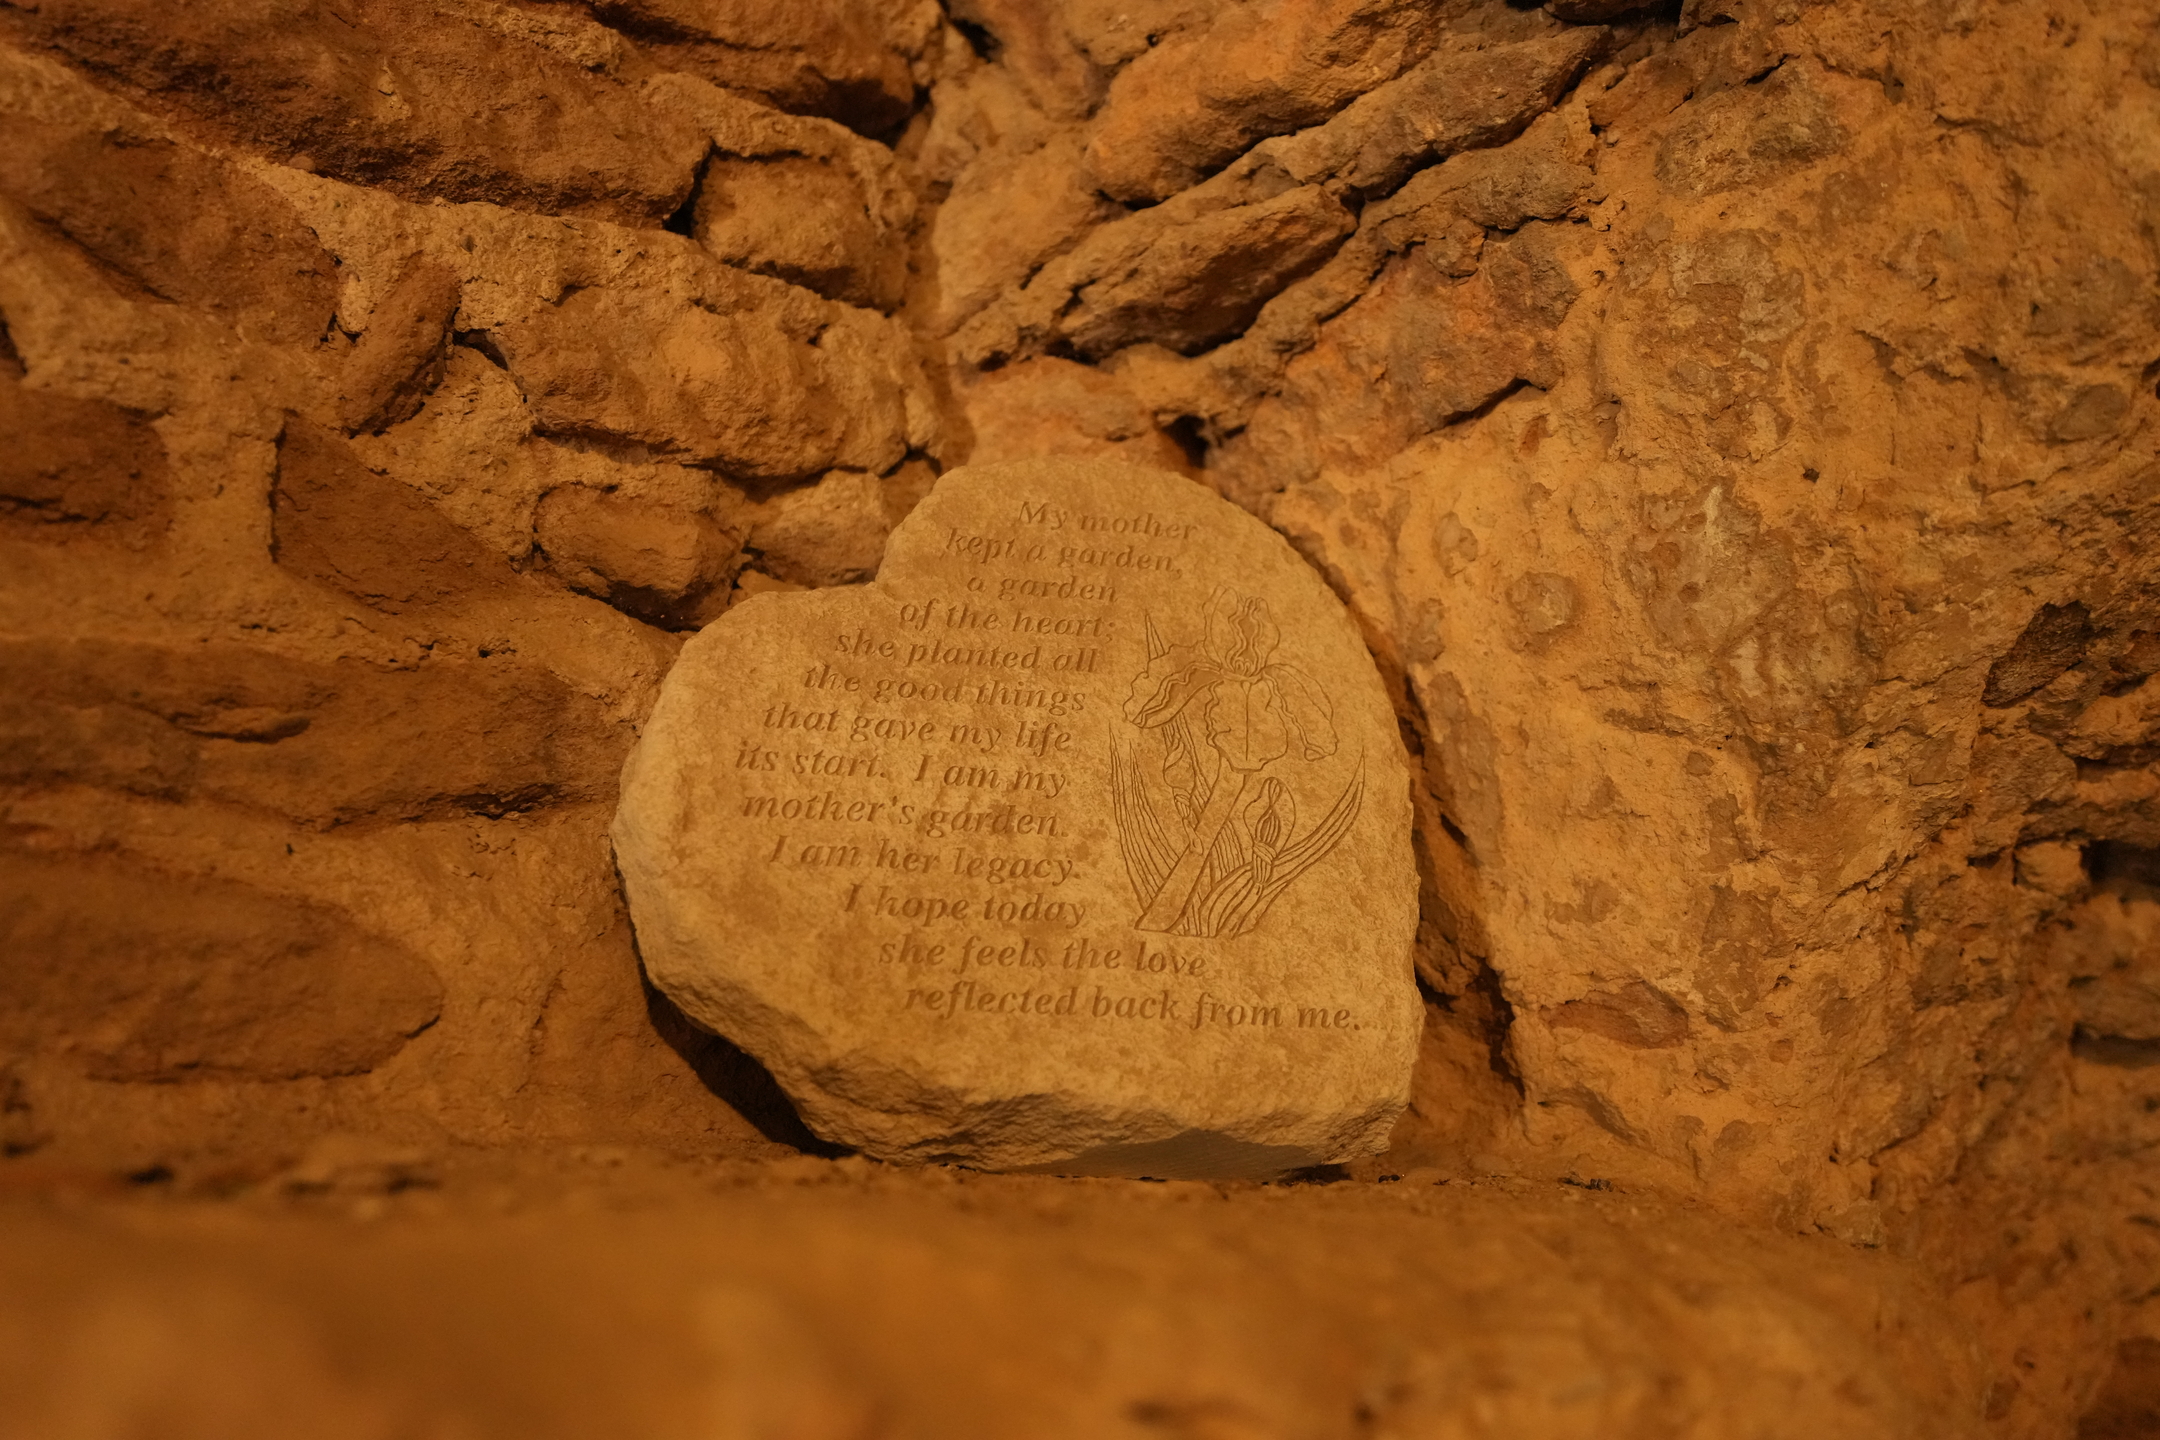 My mother
kept a garden,
a garden
of the heart;
she planted all
the good things
that gave my life
its start. I am my
mother's garden.
I am her legacy.
I hope today
she feels the love
reflected back from me.